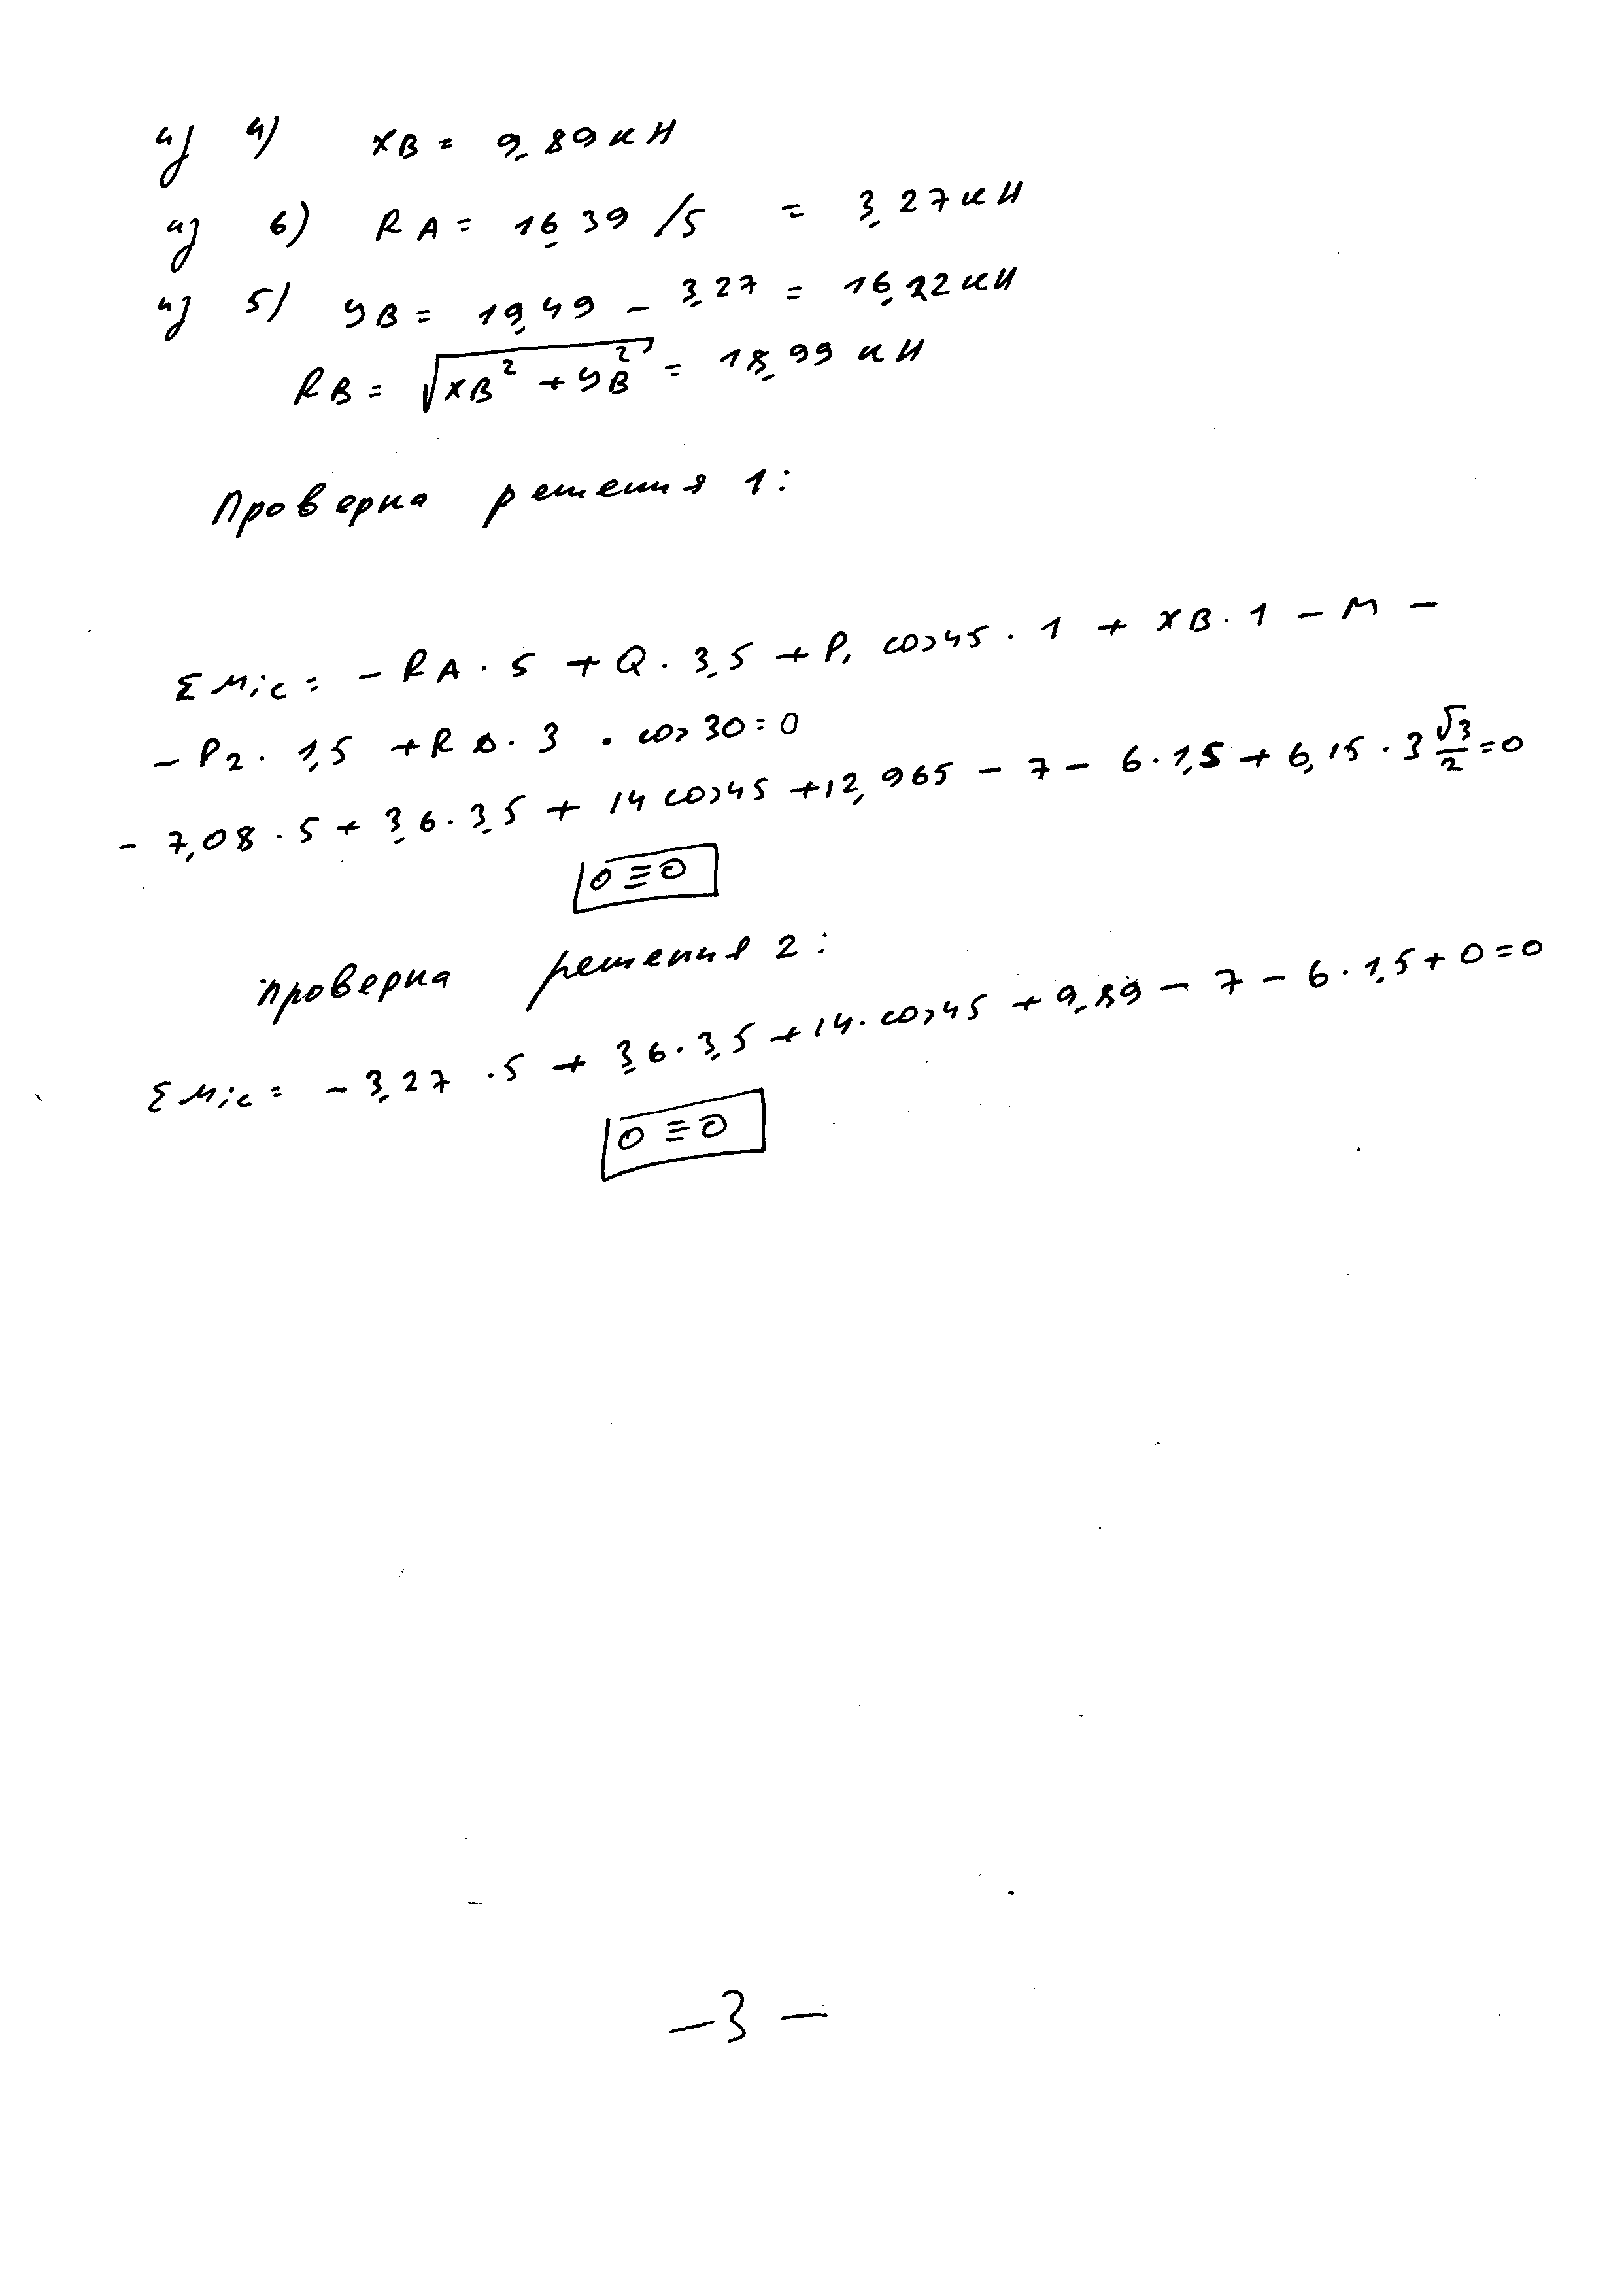 из 4) XB = 9,89 кН
из 6) RA = 16,39 /5 = 3,27 кН
из 5) YB = 19,49 - 3,27 = 16,22 кН
RB = √(XB² + YB²) = 18,99 кН
Проверка решения 1:
ΣMic = - RA · 5 + Q · 3,5 + P₁ cos45 · 1 + XB · 1 - M -
- P2 · 1,5 + RD · 3 · cos30 = 0
- 7,08 · 5 + 3,6 · 3,5 + 14 cos45 + 12,965 - 7 - 6 · 1,5 + 6,15 · 3 √3/2 = 0
0 ≡ 0
Проверка решения 2:
ΣMic = - 3,27 · 5 + 3,6 · 3,5 + 14 · cos45 + 9,89 - 7 - 6 · 1,5 + 0 = 0
0 ≡ 0
- 3 -